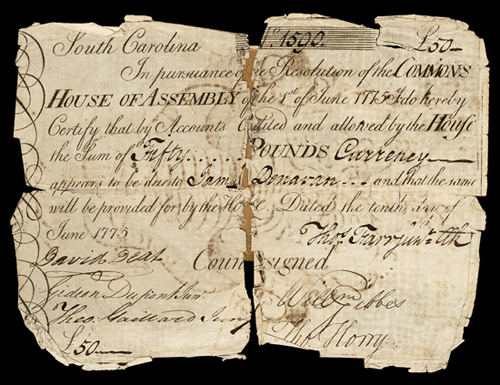 South Carolina No. 1590. £50
In pursuance of the Resolution of the COMMONS
HOUSE OF ASSEMBLY of the 1st of June 1775 I do hereby
Certify that by Accounts Audited and allowed by the House
the Sum of Fifty POUNDS Currency
appears to be due to Donavan and that the same
will be provided for by the House. Dated the tenth day of
June 1775 Thos. Farr Junr. Clk
David Deas Countersigned
Gideon Dupont Junr Willm Gibbes
Theo. Gaillard Junr Thos Horry
£50